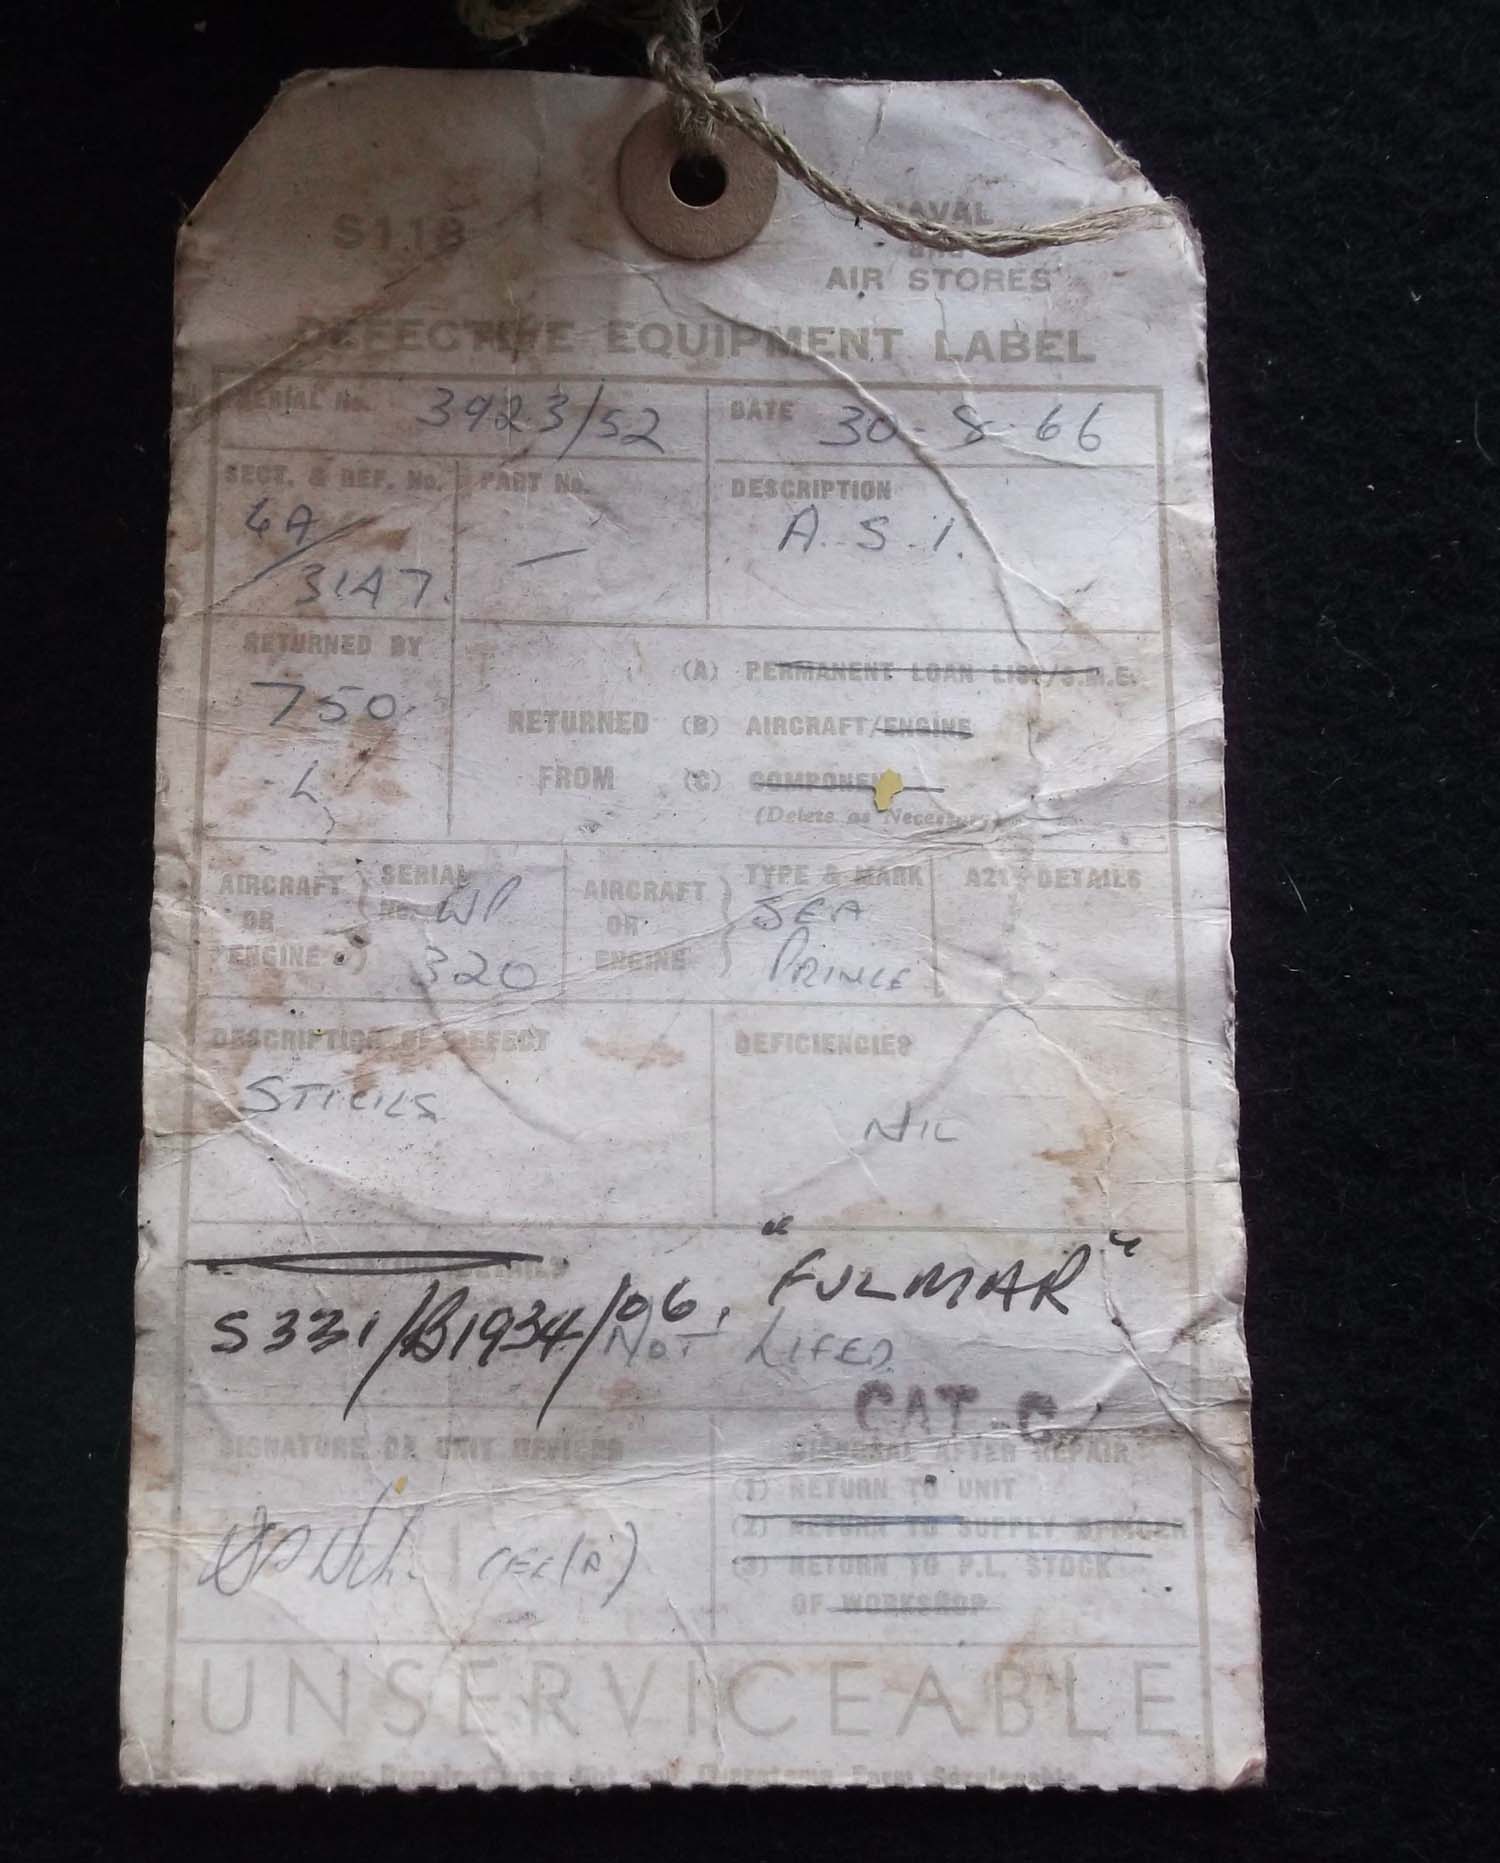 S118
NAVAL
and
AIR STORES
DEFECTIVE EQUIPMENT LABEL
SERIAL No. 3923/52
DATE 30-8-66
SECT. & REF. No.
6A/
3147.
PART No.
—
DESCRIPTION
A.S.I.
RETURNED BY
750
L
RETURNED
FROM
(A) PERMANENT LOAN LIST/S.M.E.
(B) AIRCRAFT/ENGINE
(C) COMPONENT
(Delete as Necessary)
AIRCRAFT
OR
ENGINE
SERIAL
No. WP
320
AIRCRAFT
OR
ENGINE
TYPE & MARK
SEA
PRINCE
DETAILS
DESCRIPTION OF DEFECT
STICKS
DEFICIENCIES
NIL
"FULMAR"
S331/B1934/06.
NOT LIFED
CAT C
SIGNATURE OF UNIT OFFICER
DISPOSAL AFTER REPAIR
(1) RETURN TO UNIT
(2) RETURN TO SUPPLY OFFICER
(3) RETURN TO P.L. STOCK
OF WORKSHOP
UNSERVICEABLE